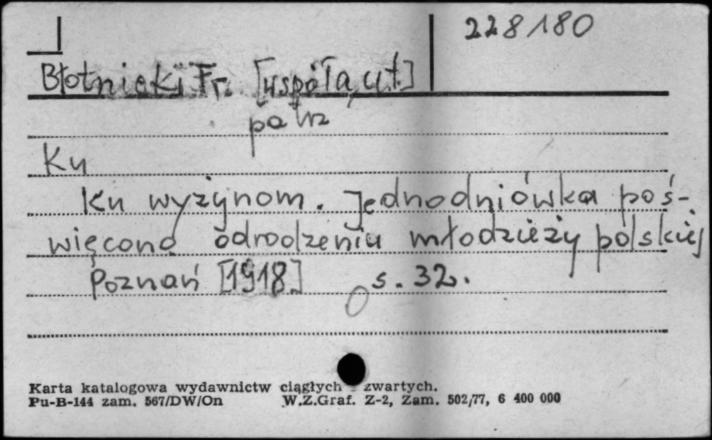 228180
Błotnicki Fr. [współaut.]
patrz
Ku
Ku wyżynom. Jednodniówka poś-
więcona odrodzeniu młodzieży polskiej
Poznań [1918.] s. 32.
Karta katalogowa wydawnictw ciągłych i zwartych.
Pu-B-144 zam. 567/DW/On W.Z.Graf. Z-2, Zam. 502/77, 6 400 000